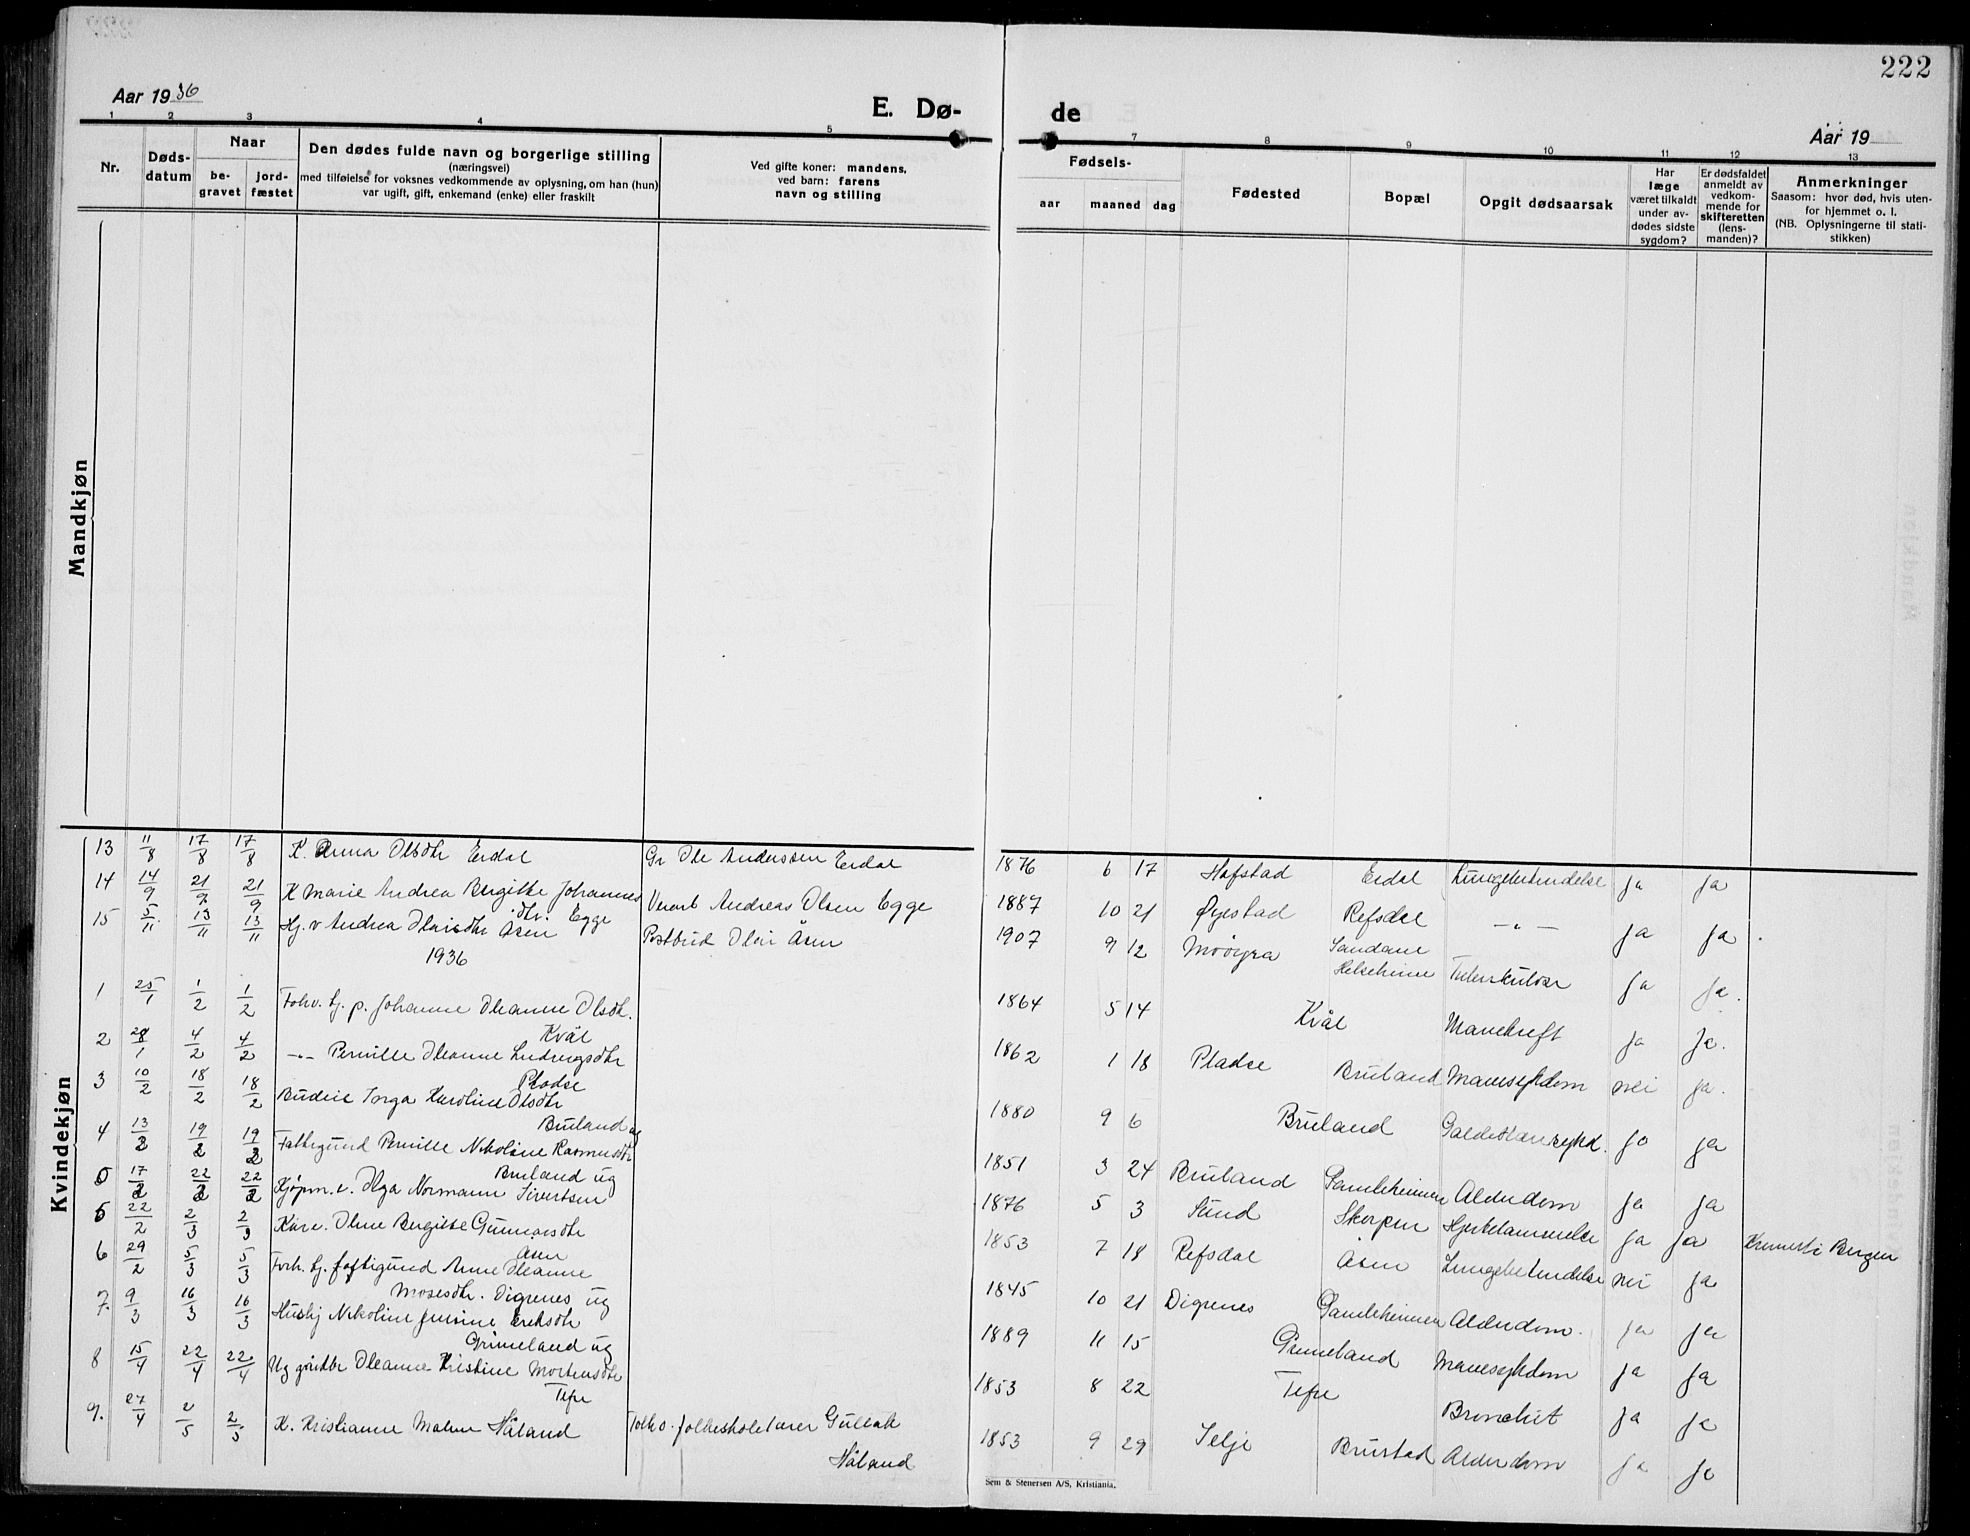 222
Aar 1936
E. Dø-
de
Aar 19
1 2 3 4 5 7 8 9 10 11 12 13
Nr.
Døds-
datum
Naar
be-
gravet
jord-
fæstet
Den dødes fulde navn og borgerlige stilling
(næringsvei)
med tilføielse for voksnes vedkommende av oplysning, om han (hun)
var ugift, gift, enkemand (enke) eller fraskilt
Ved gifte koner: mandens,
ved barn: farens
navn og stilling
Fødsels-
aar maaned dag
Fødested
Bopæl
Opgit dødsaarsak
Har
læge
været tilkaldt
under av-
dødes sidste
sygdom?
Er dødsfaldet
anmeldt av
vedkom-
mende for
skifteretten
(lens-
manden)?
Anmerkninger
Saasom: hvor død, hvis uten-
for hjemmet o. l.
(NB. Oplysningerne til stati-
stikken)
Mandkjøn
Kvindekjøn
13 11/8 17/8 17/8 K. Anna Olsdtr Erdal Gr Ole Anderssen Erdal 1876 6 17 Hafstad Erdal Lungebetendelse ja ja
14 14/9 21/9 21/9 K Marie Andrea Bergitte Johannes
dtr. Egge Verarb Andreas Olsen Egge 1887 10 21 Øyestad Refsdal —"— ja ja
15 5/11 13/11 13/11 Hj. v Andrea Olaisdtr Åsen Postbud Olai Åsen 1907 9 12 Sandane
Helseheim Tuberkulose ja ja.
1936
1 25/1 1/2 1/2 Forhv. tj. p. Johanne Oleanne Olsdtr.
Kvål 1864 5 14 Kvål Mavekreft ja ja.
2 28/1 4/2 4/2 —"— Pernille Oleanne Ludvigsdtr
Pladse 1862 1 18 Pladse Bruland Mavesykdom nei ja.
3 10/2 18/2 18/2 Budeie Inga Karoline Olsdtr
Bruland ug 1880 9 6 Bruland ja ja
4 13/2 19/2 19/2 Fattigund Pernille Nikoline Rasmusdtr
Bruland ug 1851 3 24 Bruland Samleheimen Alderdom ja ja
5 17/2 22/2 22/2 Kjøpm. e. Olga Normann Sivertsen 1876 5 3 Sund Skorpen Hjertelammelse ja ja Bergen
5 22/2 2/3 2/3 Kåre. Oline Bergitte Gunnarsdtr
Åsen 1853 7 18 Refsdal Åsen Lungebetendelse nei ja
6 29/2 5/3 5/3 Forh. tj. fattigund Anne Oleanne
Mosesdtr. Digrenes ug 1845 10 21 Digrenes Samleheimen Alderdom. ja ja
7. 9/3 16/3 16/3 Hushj Nikoline Jensine Eriksdtr
Grimeland ug 1889 11 15 Grimeland Mavesykdom ja ja
8 15/4 22/4 22/4 Ug Oleanne Kristine Mortensdtr
Tefre 1853 8 22 Tefre Bronchit ja ja
9. 27/4 2/5 2/5 K. Kristianne Malene Håland folkeskolelærer Gullak
Håland 1853 9 29 Selje Brustad Alderdom ja ja
Sem & Stenersen A/S, Kristiania.